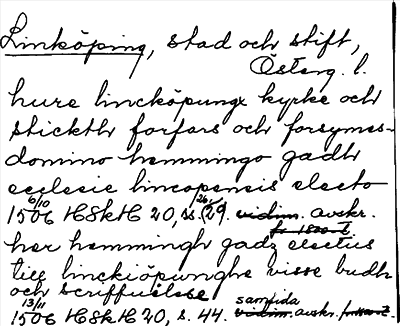 Linköping, stad och stift,
Österg. l.
hure lincköpungx kyrke och
stickth forfars och forsymes-
domino hemmingo gadh
ecclesie lincopensis electo
6/10 1506 HSkH 20, ss. 26, (29. vidim. avskr.
fr. 1500-t.
her hemmingh gadz electus
till linckiöpwnghx visse budh
och scriffuelsse
13/11 samtida
1506 HSkH 20, s. 44. vidim. avskr.